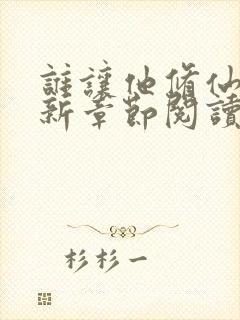 誰讓他脩仙
新章節閱讀
杉杉一